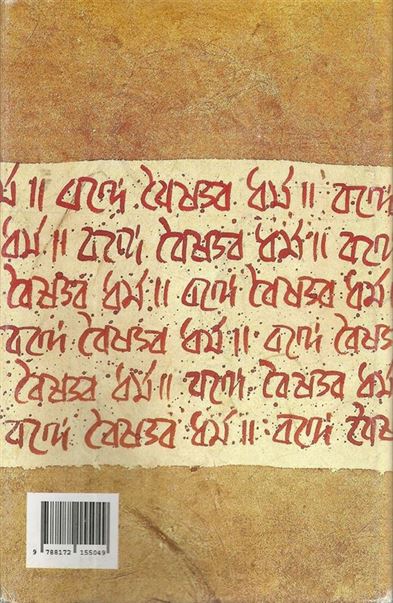 র্ম ॥ বঙ্গে বৈষ্ণব ধর্ম ॥ বঙ্গে
ধর্ম ॥ বঙ্গে বৈষ্ণব ধর্ম ॥ বঙ্গে
বৈষ্ণব ধর্ম ॥ বঙ্গে বৈষ্ণব ধর্ম
বঙ্গে বৈষ্ণব ধর্ম ॥ বঙ্গে বৈষ্ণব
বৈষ্ণব ধর্ম ॥ বঙ্গে বৈষ্ণব ধর্ম
বঙ্গে বৈষ্ণব ধর্ম ॥ বঙ্গে বৈষ্ণ
9 788172 155049